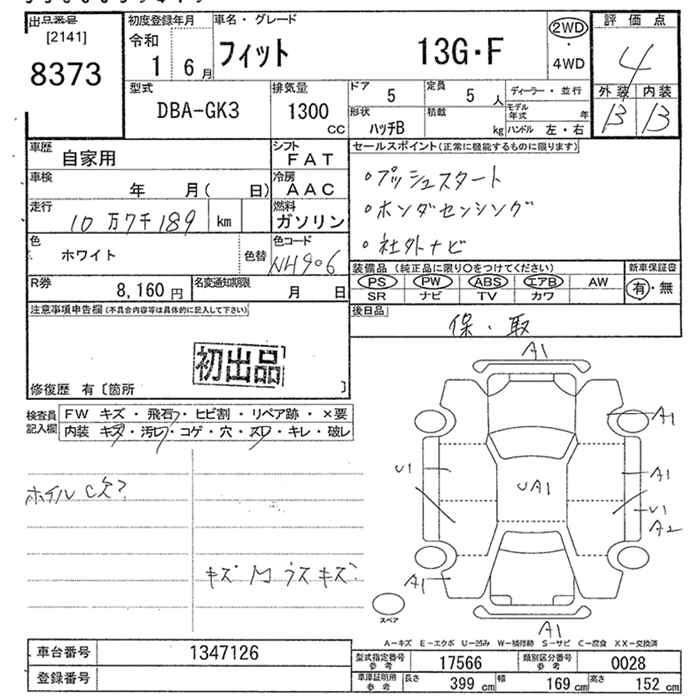 出品番号
[2141]
8373
初度登録年月
令和
1 6月
車名・グレード
フィット 13G・F
2WD
・
4WD
評価点
4
外装 内装
B B
型式
DBA-GK3
排気量
1300
cc
ドア
5
定員
5 人
形状
ハッチB
積載
kg
ディーラー・並行
モデル年式 年
ハンドル 左・右
車歴
自家用
シフト
FAT
車検
年 月( 日)
冷房
AAC
走行
10万7千189 km
燃料
ガソリン
色
ホワイト
色替
色コード
NH906
R券
8,160 円
名変通知期限
月 日
セールスポイント(正常に機能するものに限ります)
・プッシュスタート
・ホンダセンシング
・社外ナビ
装備品(純正品に限り○をつけてください)
PS PW ABS エアB AW
SR ナビ TV カワ
新車保証書
有・無
後日品
保・取
注意事項申告欄(不具合内容等は具体的に記入して下さい)
初出品
修復歴 有〔箇所 〕
検査員
記入欄
FW キズ・飛石・ヒビ割・リペア跡・×要
内装 キズ・汚レ・コゲ・穴・スレ・キレ・破レ
ホイルC欠?
キズ
ウスキズ
A1
A1
U1
UA1
A1
U1
A2
A1
A1
スペア
A-キズ E-エクボ U-凹み W-補修跡 S-サビ C-腐食 XX-交換済
車台番号
1347126
登録番号
型式指定番号
参考
17566
類別区分番号
参考
0028
車庫証明用
参考
長さ
399 cm
幅
169 cm
高さ
152 cm